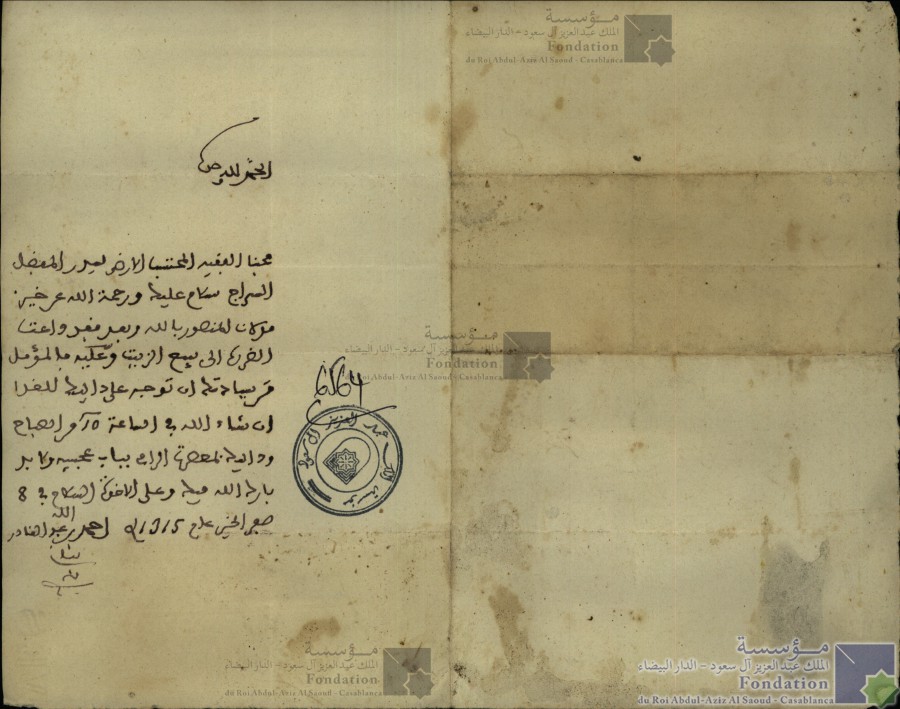 مؤسسة
الملك عبدالعزيز آل سعود - الدار البيضاء
Fondation
du Roi Abdul-Aziz Al Saoud - Casablanca
الحمد لله وحده
محبنا الفقيه المحتسب الارضى سيدي المفضل
السراج سلام عليك ورحمة الله عن خير
مولانا المنصور بالله وبعد فقد دعتنا
الضرورة الى بيع الزيت وعليه فالمؤمل
من سيادتك ان توجه على ذلك للغد
ان شاء الله في الساعة 10 من الصباح
وذلك بباب عجيسة ولا بد
بارك الله فيك وعلى الاخوة والسلام في 8
صفر الخير عام احمد بن عبد القادر
لطف الله
به
6564
مؤسسة الملك عبد العزيز آل سعود
الملك عبدالعزيز آل سعود - الدار البيضاء
Fondation
du Roi Abdul-Aziz Al Saoud - Casablanca
مؤسسة
الملك عبدالعزيز آل سعود - الدار البيضاء
Fondation
du Roi Abdul-Aziz Al Saoud - Casablanca
مؤسسة
الملك عبدالعزيز آل سعود - الدار البيضاء
Fondation
du Roi Abdul-Aziz Al Saoud - Casablanca